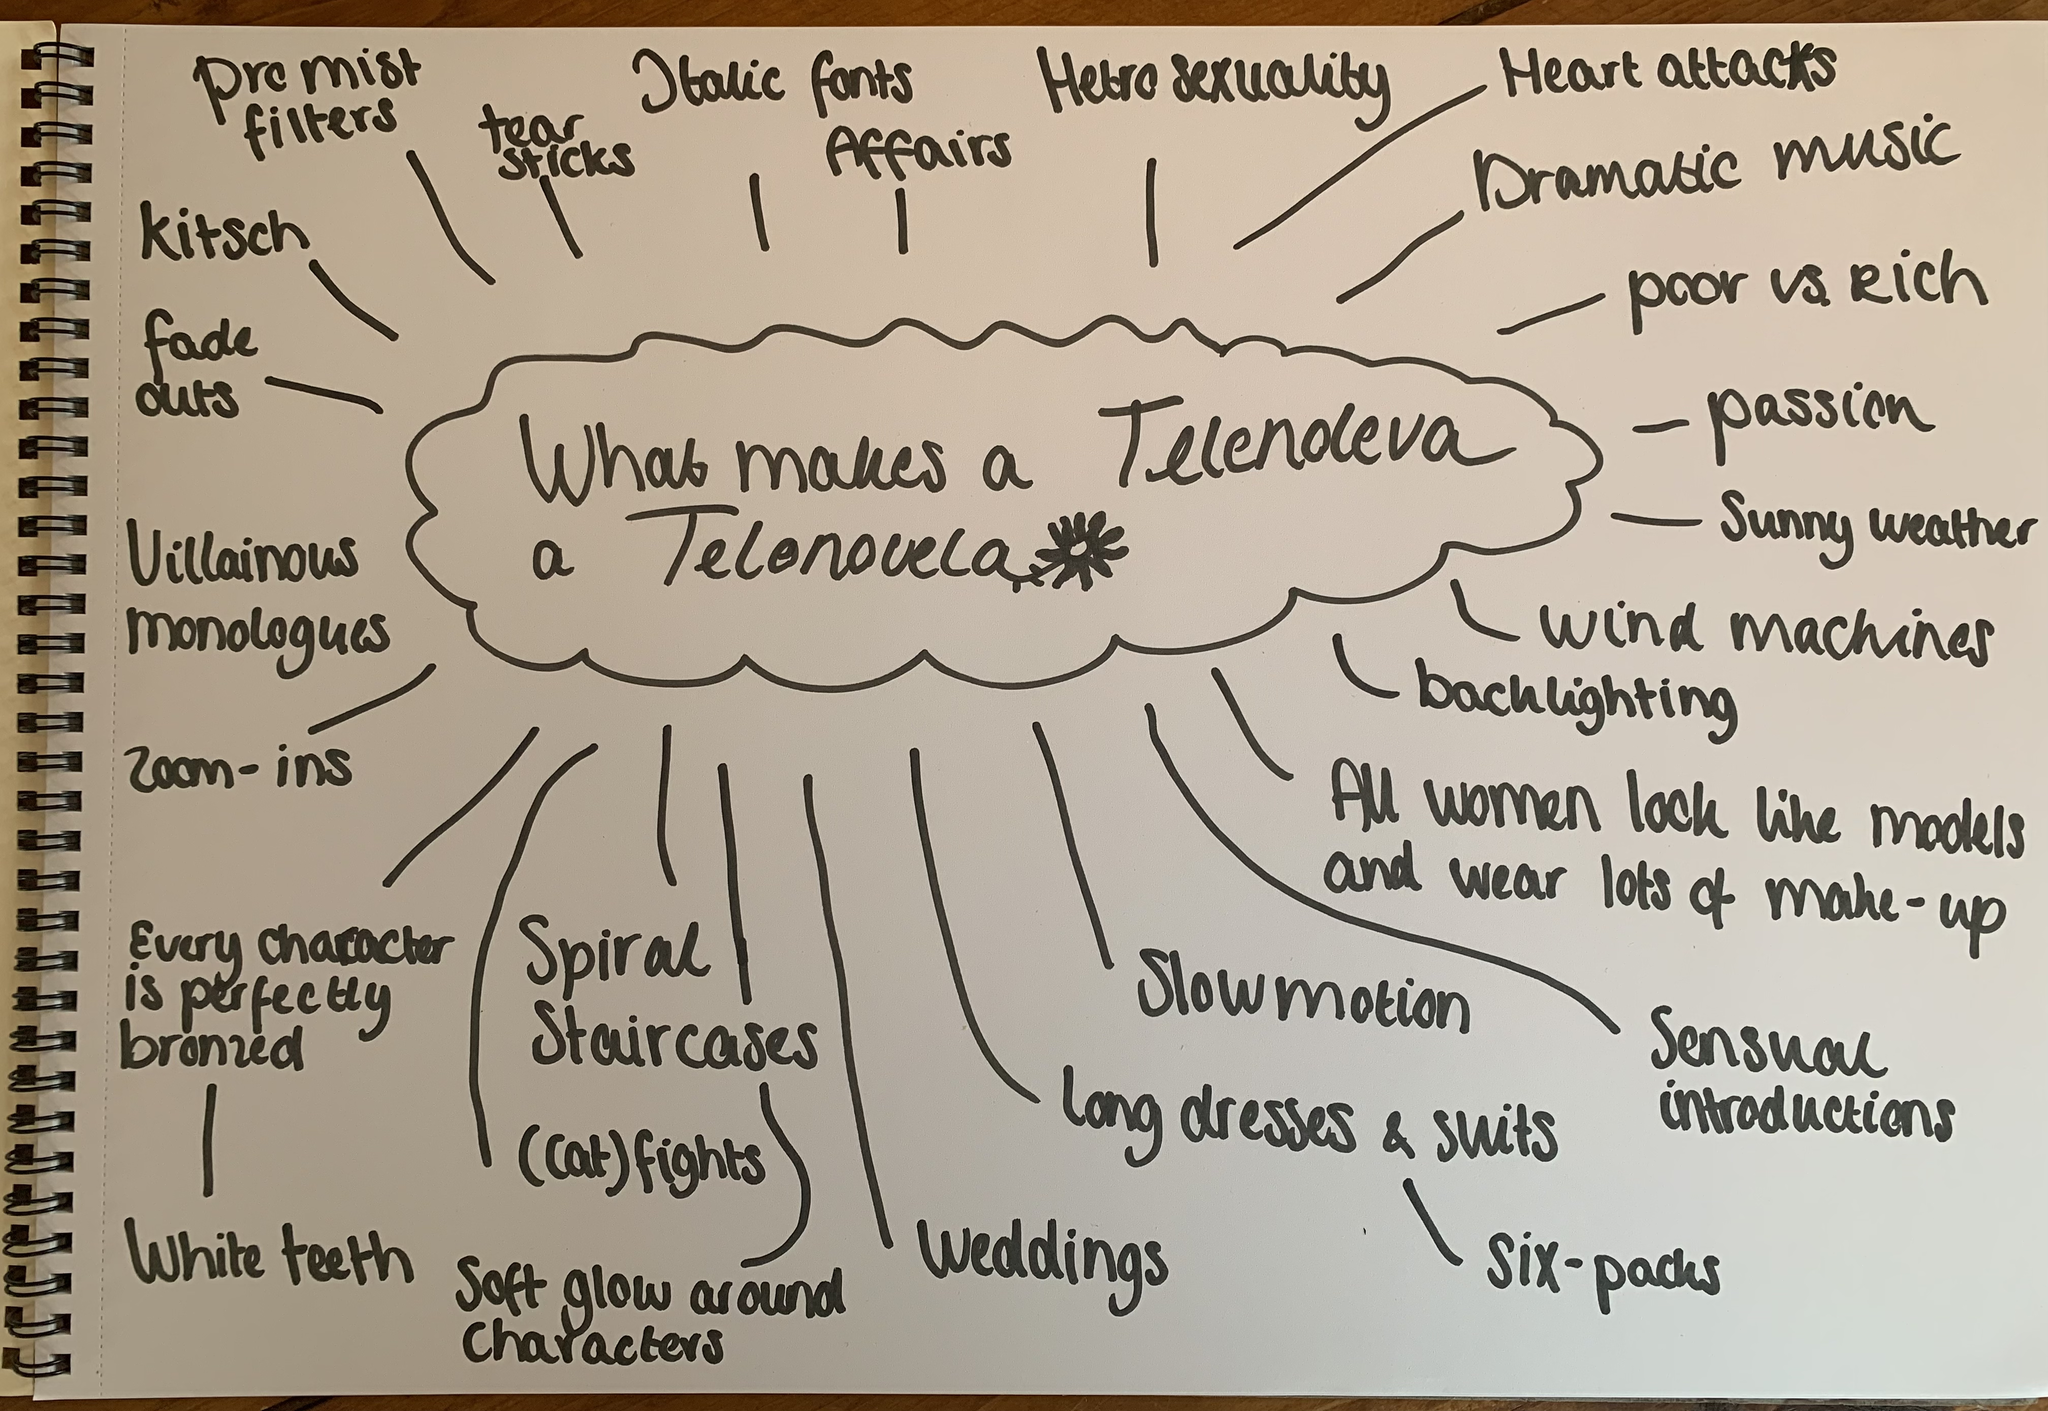 Pro mist
filters
tear
sticks
Italic fonts
Affairs
Hetro sexuality
Heart attacks
Dramatic music
poor vs. Rich
passion
Sunny weather
wind machines
backlighting
All women look like models
and wear lots of make-up
Sensual
introductions
Slowmotion
Long dresses & suits
Six-packs
Weddings
Spiral
Staircases
Soft glow around
characters
(cat)fights
Every character
is perfectly
bronzed
White teeth
Zoom-ins
Villainous
monologues
fade
outs
kitsch
What makes a Telenoleva
a Telenovela